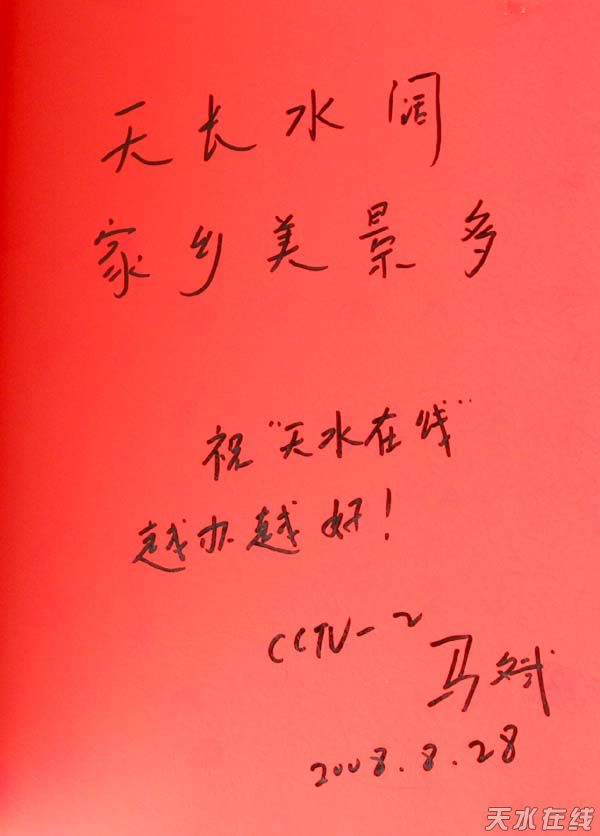 天长水阔
家乡美景多
祝"天水在线"
越办越好!
CCTV-2
马斌
2008.8.28
天水在线